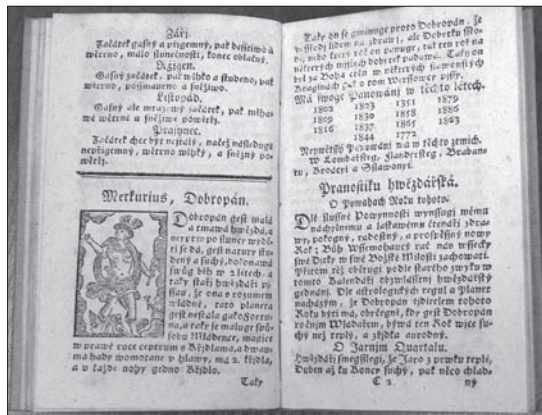 Září.
Začátek gasný a přígemný, pak desstiwo a
wětrno, málo slunečnosti, konec oblačný.
Ržigen.
Gasný začátek, pak wlhko a studeno, pak
wětrno, possmaurno a sněžiwo.
Listopád.
Gasný ale mrazywý začátek, pak mlha-
wé wětrné a sněžiwé powětřj.
Prasynec.
Začátek chce být nestálý, načež následuge
nepřígemný, wětrno wlhký, a sněžný po-
wětřj.
Merkurius, Dobropán.
Dobropán gest malá
a tmawá hwězda, a
neprwo po slunce wyché-
zj se dá, gest natury stu-
dený a suchý, dokonawá
swůg běh w 2 letech. a
taky stařj hwězdáři pj-
ssau, že ona s rozumem
wládne, tato planeta
gest nestálá gako Fortu-
na, a taky se maluge spů-
sobu Mládence, magice
w prawé ruce ceptrum s Křjdlama, a dwau-
ma hady womotané w hlawy, má 2. křjdla,
a w každé nohy gedno Křjdlo.
Taky
Taky on se gmenuge proto Dobropán, že
w některých mjstech dobytek padawá. Taky on
byl za Boha ctěn w některých slowenských
Kraginách
Má swoge Panowánj w těchto létech.
1802 1823 1351 1879
1809 1830 1858 1886
1816 1837 1865 1863
1844 1772
Neywětssj Panowánj má w těchto zemjch.
w Lombatsteg, Flandersteg, Braban-
tu, Brodcyi a Sslawonyi.
Pranostiku hwězdářská.
O Powahách Roku tohoto.
Dlé slussné Powynnosti wynssugj mému
náchylnému a laskawému čtenáři zdra-
wy, pokogný, radostný, a prospěssný nowy
Rok; Bůh Wssemohaucý rač nás wssecky
swé Djtky w swé Božské Milosti zachowati.
Přitom též obětugi podle starého zwyku w
tomto Kalendáři obzwlásstnj hwězdářský
gednánj. Dle astrologických regul a Planet
nacházým, že Dobropán ředitelem tohoto
Roku býti má, obecegně, kdy gest Dobropán
ročnim Wladařem, býwá ten Rok wjce su-
chý než teplý, a zřjdka aurodný.
O Jarnjm Quartalu.
Hwězdáři smegsslegj, že Jaro z prwku teplé,
Duben až ku Koncy suchý, pak něco chlad-
C 2 ný